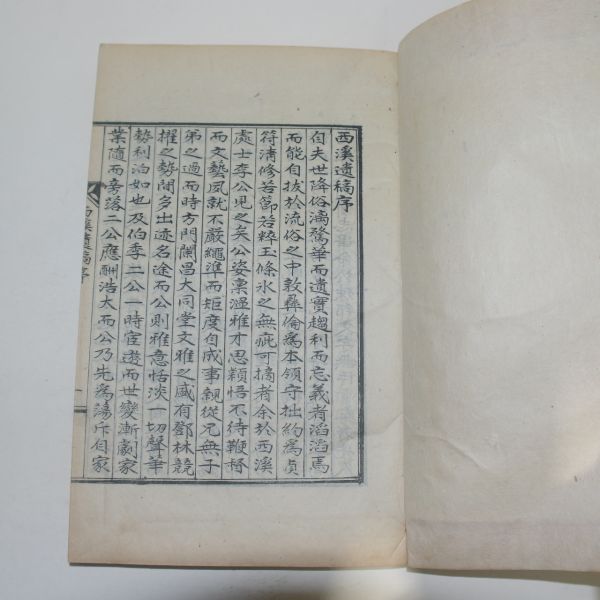 西溪遺稿序
自夫世降俗漓騖華而遺實趨利而忘義者滔滔焉
而能自拔於流俗之中敦彝倫爲本領守拙約爲貞
符淸修苦節若粹玉條氷之無疵可摘者余於西溪
處士李公見之矣公姿稟溫雅才思穎悟不待鞭督
而文藝夙就不嚴繩準而矩度自成事親從兄無子
弟之過而時方門闌昌大同堂文雅之盛有鄧林競
櫂之勢閈多出迹名途而公則雅意恬淡一切聲華
勢利泊如也及伯季二公一時宦遊而世變漸劇家
業隨而旁落二公應酬浩大而公乃先爲蕩斥自家
西溪遺稿序
一